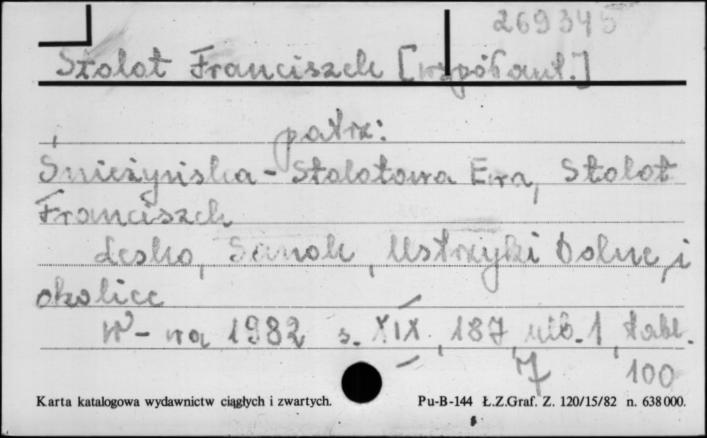 269345
Stolot Franciszek [współaut.]
patrz:
Śnieżyńska - Stolotowa Ewa, Stolot
Franciszek
Lesko, Sanok, Ustrzyki Dolne, i
okolice
W-wa 1982 s. XIX, 187, nlb. 1, tabl.
7 100
Karta katalogowa wydawnictw ciągłych i zwartych. Pu-B-144 Ł.Z.Graf. Z. 120/15/82 n. 638000.